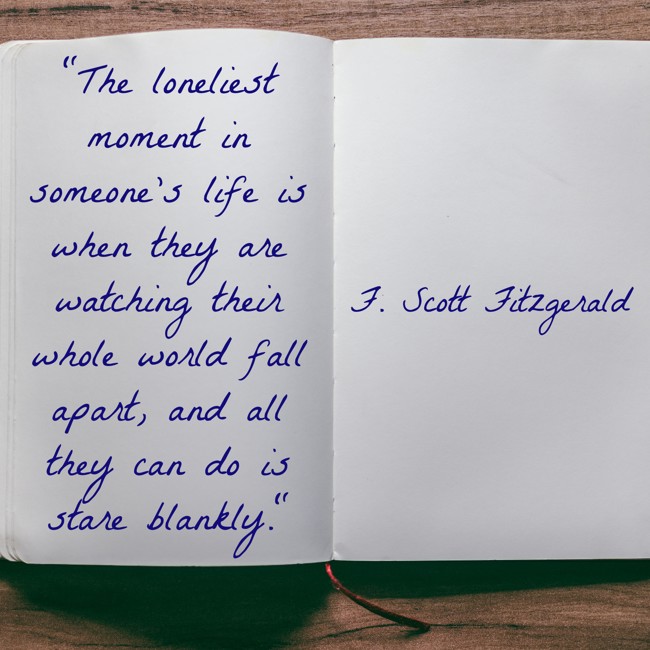 “The loneliest
moment in
someone's life is
when they are
watching their
whole world fall
apart, and all
they can do is
stare blankly.“
F. Scott Fitzgerald